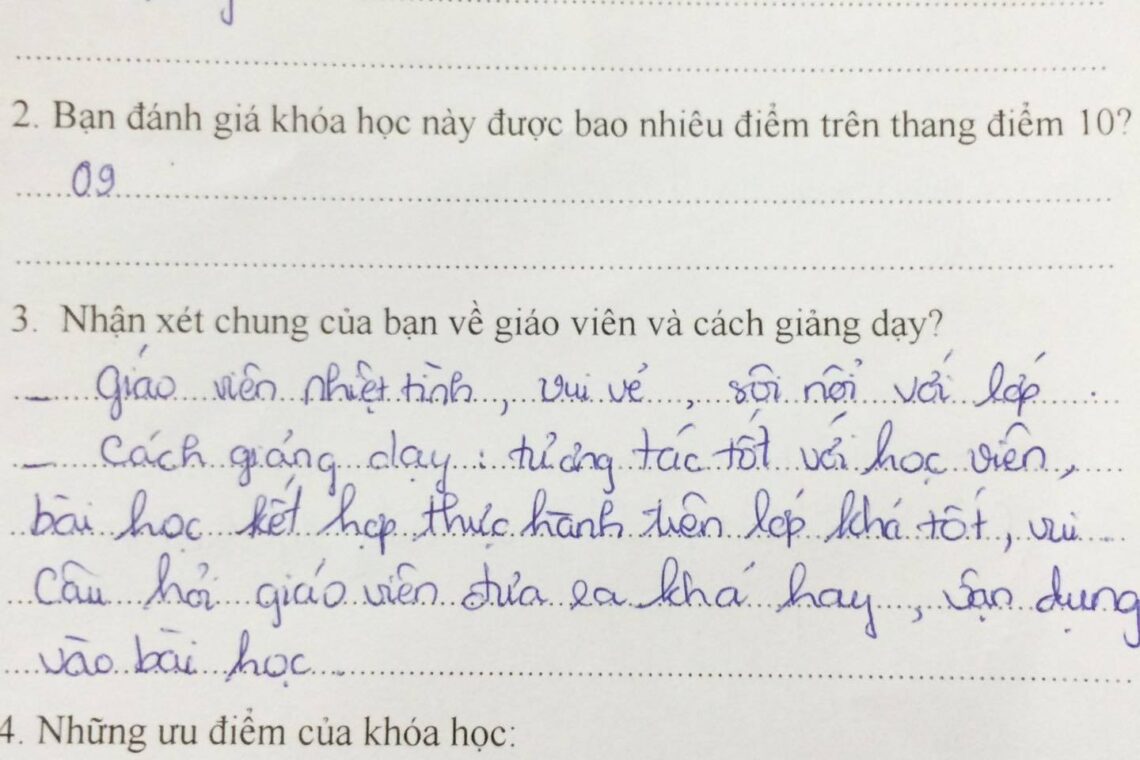 2. Bạn đánh giá khóa học này được bao nhiêu điểm trên thang điểm 10?
09
3. Nhận xét chung của bạn về giáo viên và cách giảng dạy?
_ giáo viên nhiệt tình, vui vẻ, sôi nổi với lớp.
_ Cách giảng dạy: tương tác tốt với học viên,
bài học kết hợp thực hành trên lớp khá tốt, vui
Câu hỏi giáo viên đưa ra khá hay, vận dụng
vào bài học
4. Những ưu điểm của khóa học: